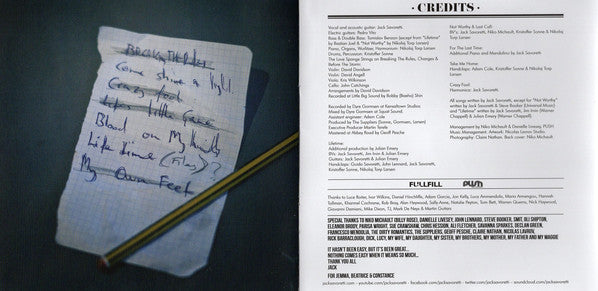 BREAKING THE RULES
Come shine a light
Crazy fool
Blood on my hands
Lifetime (Film)?
My Own Feet
· CREDITS ·
Vocal and acoustic guitar: Jack Savoretti
Electric guitars: Pedro Vito
Drums, Percussion: Kristoffer Sonne
The Love Sponge Strings on Breaking The Rules, Changes &
Before The Storm:
Violin: David Davidson
Violin: David Angell
Viola: Kris Wilkinson
Cello: John Catchings
Arrangements by David Davidson
Recorded at Little Big Sound by Bobby (Bosha) Shin
Recorded by Dare Gormsen at Kensaltown Studios
Mixed by Dare Gormsen at Squat Sound.
Assistant engineer: Adam Cole
Produced by The Suppliers (Sonne, Gormsen, Larsen)
Executive Producer Martin Terefe
Mastered at Abbey Road by Geoff Pesche
Lifetime:
Additional production by Julian Emery
BVs: Jack Savoretti, Jim Irvin & Julian Emery
Guitars: Jack Savoretti & Julian Emery
Handclaps: Guido Savoretti, John Lennard, Jack Savoretti,
Nikolaj Torp Larsen
Not Worthy & Last Call:
BV's: Jack Savoretti, Niko Michault, Kristoffer Sonne & Nikolaj
Torp Larsen
For The Last Time:
Additional Piano and Mandolino by Jack Savoretti
Take Me Home:
Handclaps: Adam Cole, Kristoffer Sonne & Nikolaj Torp
Larsen
Crazy Fool:
Harmonica: Jack Savoretti.
All songs written by Jack Savoretti, except for "Not Worthy"
written by Jack Savoretti and Steve Booker (Universal Music)
and "Lifetime" written by Jack Savoretti, Jim Irvin (Warner
Chappell) and Julian Emery (Warner Chappell).
Management by Niko Michault & Danielle Livesey, PUSH
Music Management. Artwork: Nicolas Lavrov Studio.
Photography: Claire Nathan. Back cover: Niko Michault.
FULLFILL
PUSH
Thanks to Luce Rotter, Ivor Wilkins, Daniel Hinchliffe, Adam Garcia, Jon Kelly, Luca Ammendola, Maria Armengou, Hannah
SPECIAL THANKS TO NIKO MICHAULT (BILLY ROSE), DANIELLE LIVESEY, JOHN LENNARD, STEVE BOOKER, SMIT, ALI SHIPTON,
ELEANOR BRODY, PARISA WRIGHT, SUE CRAWSHAW, CHRIS HESSION, ALI FLETCHER, SAVANNA SPARKES, DECLAN GREEN,
FRANCESCO MENDOLIA, THE DIRTY ROMANTICS, THE SUPPLIERS, GEOFF PESCHE, CLAIRE NATHAN, NICOLAS LAVROV,
RICK BARRACLOUGH, DICK, LUCY, MY WIFE, MY DAUGHTER, MY SISTER, MY BROTHERS, MY MOTHER, MY FATHER AND MY MAGGIE
IT HASN'T BEEN EASY, BUT IT'S BEEN GREAT...
NOTHING COMES EASY WHEN IT MEANS SO MUCH...
THANK YOU ALL
JACK
FOR JEMMA, BEATRICE & CONSTANCE
jacksavoretti.com - youtube.com/jacksavoretti - facebook.com/jacksavoretti - twitter.com/jacksavoretti - soundcloud.com/jacksavoretti